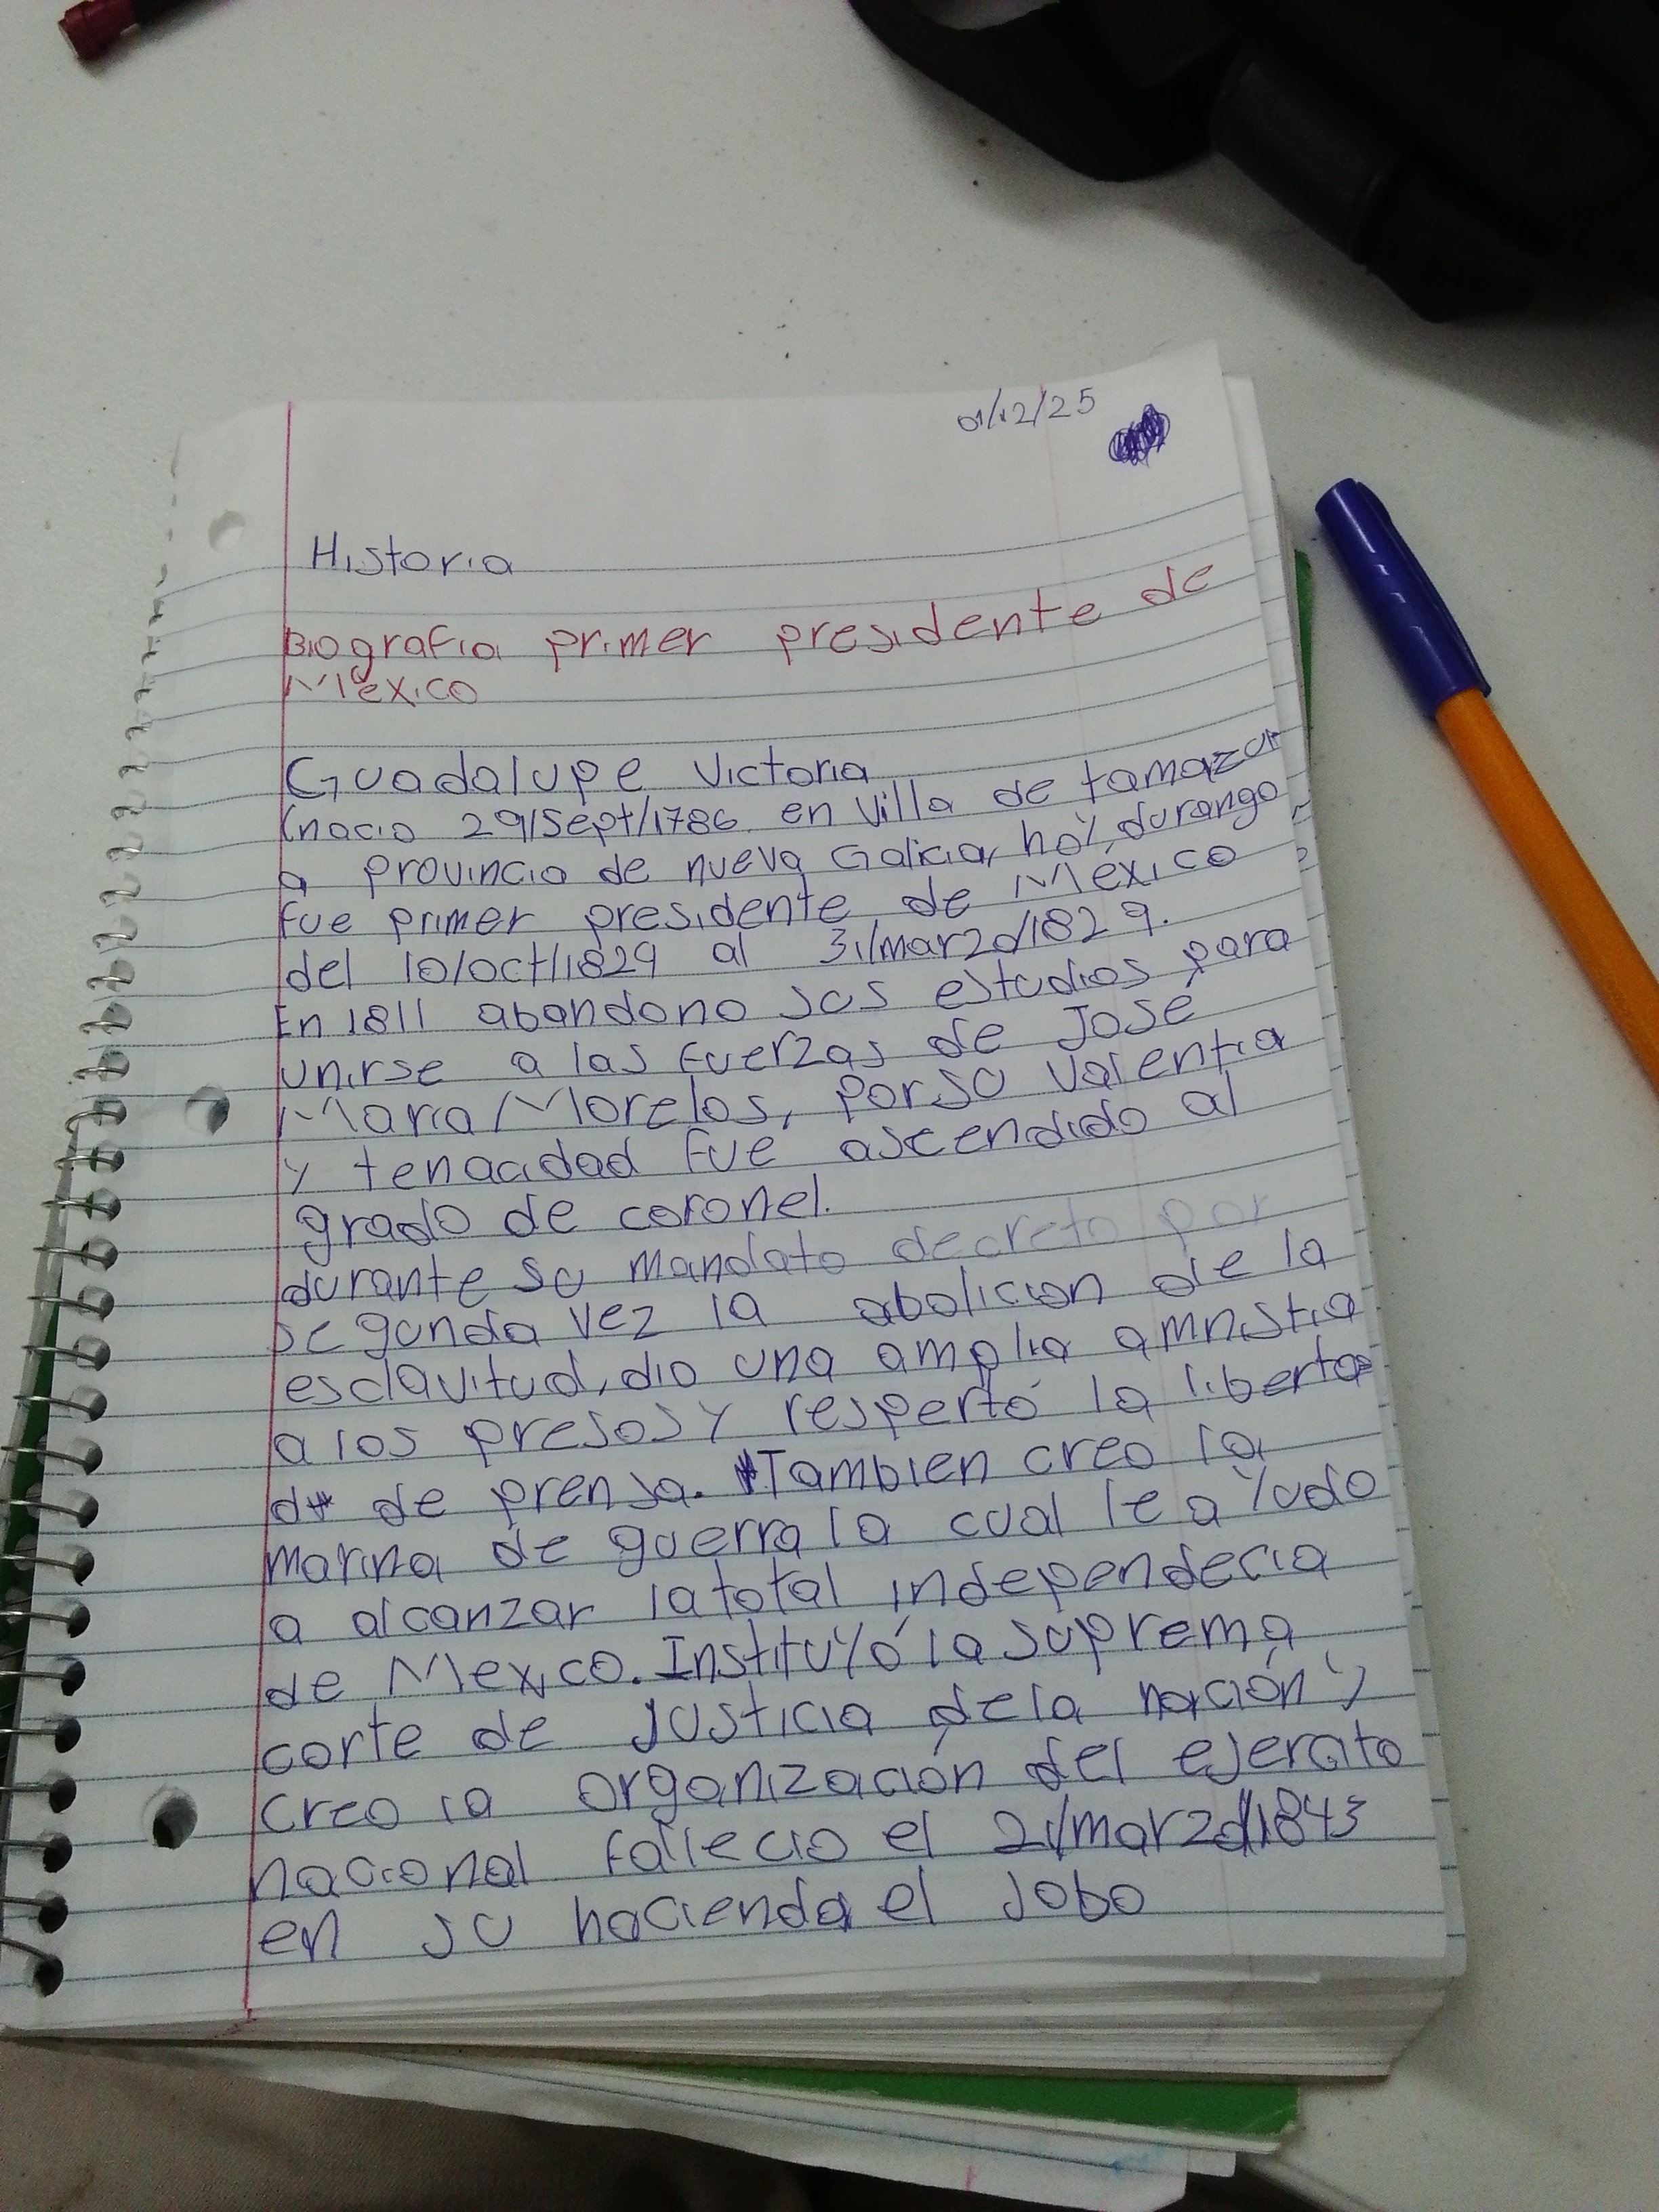 01/12/25
Historia
Biografia primer presidente de
México
Guadalupe Victoria
(nacio 29/Sept/1786 en Villa de tamazur
a provincia de nueva Galicia, hoy durango
fue primer presidente de México
del 10/oct/1829 al 31/marzo/1829.
En 1811 abandono sus estudios para
unirse a las fuerzas de José
Maria Morelos, por su valentia
y tenacidad fue ascendido al
grado de coronel.
durante su mandato decreto por
segunda vez la abolicion de la
esclavitud, dio una amplia amnistia
a los presos y respertó la liberta
d de prensa. Tambien creo la
marina de guerra la cual le ayudo
a alcanzar la total independecia
de Mexico. Instituyó la suprema
corte de justicia de la nación y
creo la organización del ejercito
nacional fallecio el 21/marzo/1843
en su hacienda el Jobo